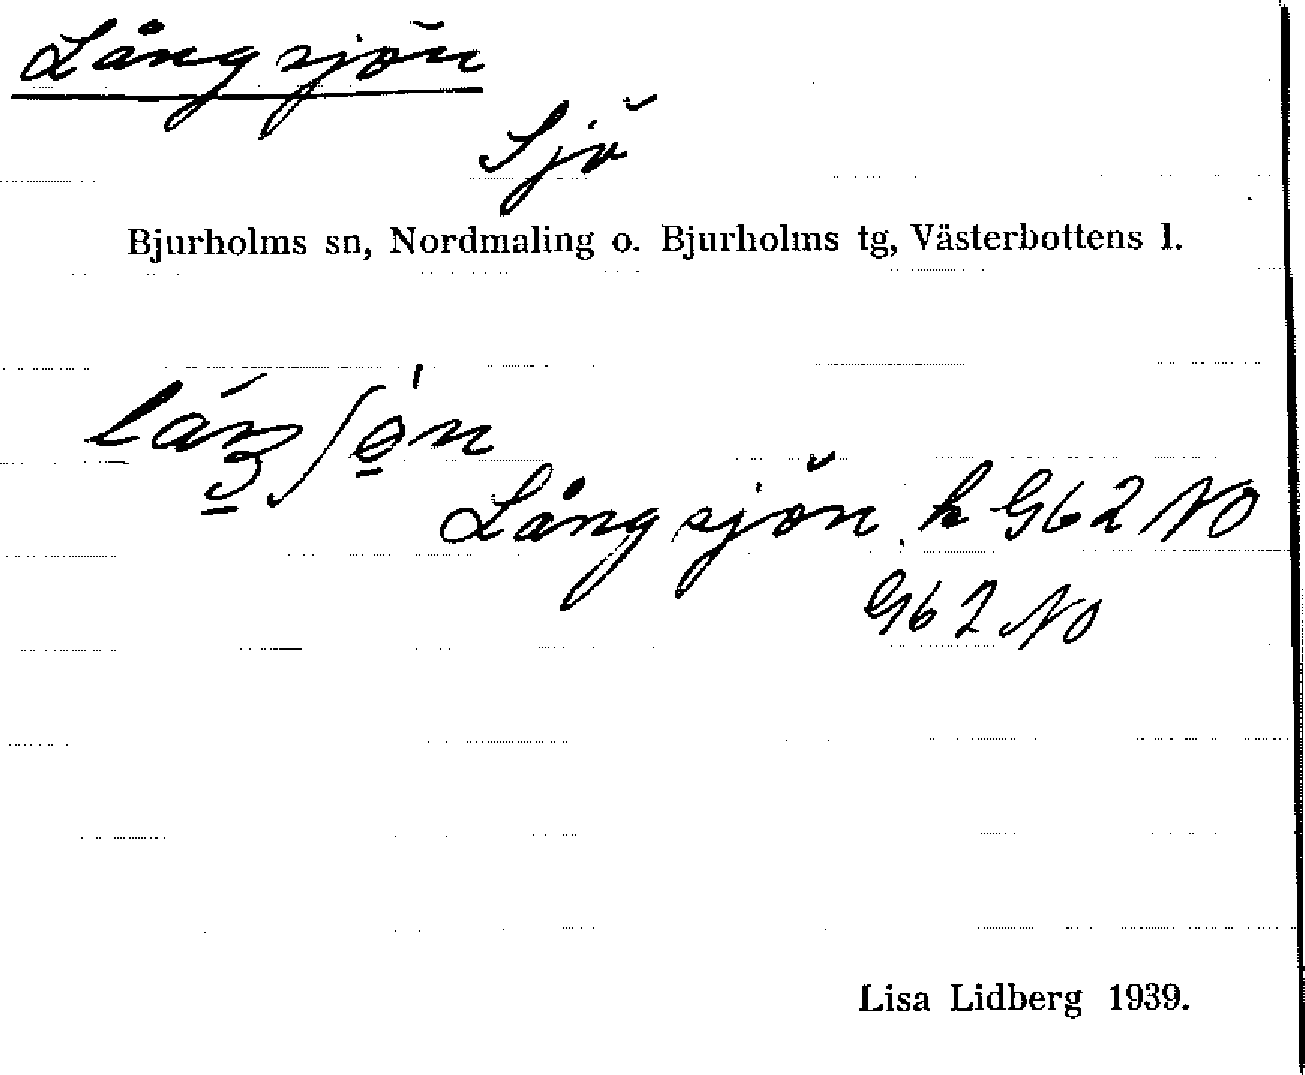 Långsjön
Sjö
Bjurholms sn, Nordmaling o. Bjurholms tg, Västerbottens l.
Långsjön k G62 NO
G62 NO
Lisa Lidberg 1939.